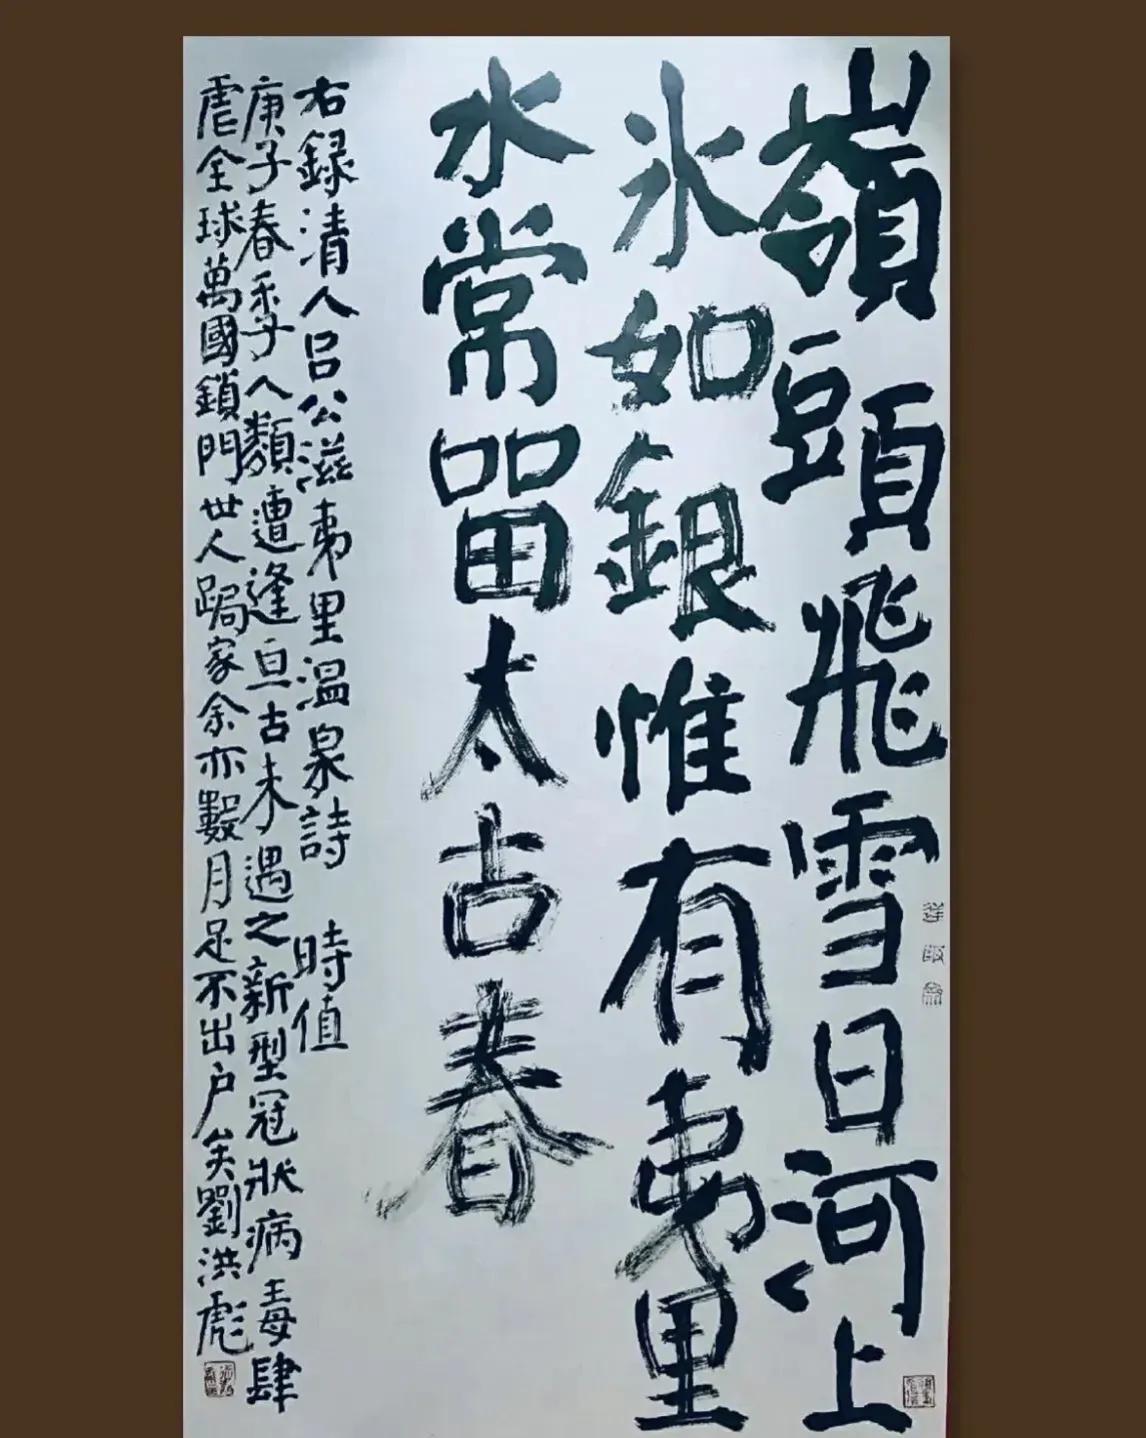 嶺頭飛雪日河上
氷如銀惟有夷里
水常畱太古春
右録清人吕公滋夷里温泉詩 時值
庚子春季人類遭逢亘古未遇之新型冠狀病毒肆
虐全球萬國鎖門世人跼家余亦數月足不出户矣劉洪彪